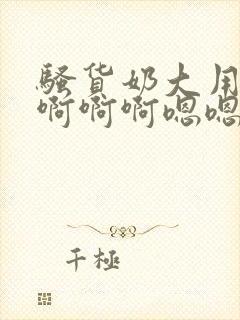 骚货奶大用
啊啊啊嗯嗯
千極